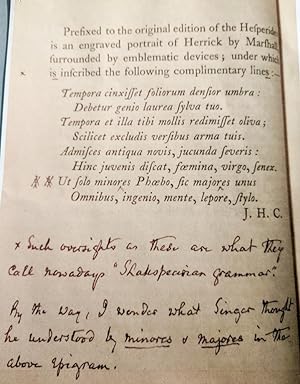 Prefixed to the original edition of the Heſperide
is an engraved portrait of Herrick by Marſhall
ſurrounded by emblematic devices; under which
x is inſcribed the following complimentary lines:—
Tempora cinxiſſet foliorum denſior umbra:
Debetur genio laurea ſylva tuo.
Tempora et illa tibi mollis redimiſſet oliva;
Scilicet excludis verſibus arma tuis.
Admiſces antiqua novis, jucunda ſeveris:
Hinc juvenis diſcat, fœmina, virgo, ſenex.
Ut ſolo minores Phœbo, ſic majores unus
Omnibus, ingenio, mente, lepore, ſtylo.
J. H. C.
x Such oversights as these are what they
call nowadays "Shakspearian grammar".
By the way, I wonder what Singer thought
he understood by minores & majores in the
above Epigram.